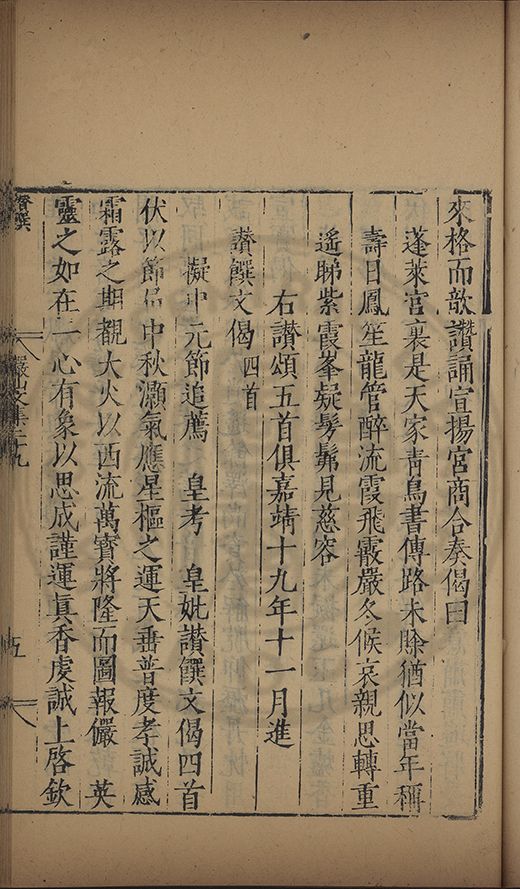 來格而歆讚誦宣揚宮商合奏偈曰
蓬萊宮裏是天家青鳥書傳路未賒猶似當年稱
壽日鳳笙龍管醉流霞飛霰嚴冬候哀親思轉重
遙睇紫霞峯疑髣髴見慈容
右讃頌五首俱嘉靖十九年十一月進
讃饌文偈四首
擬中元節追薦 皇考 皇妣讃饌文偈四首
伏以節届中秋灝氣應星樞之運天垂普度孝誠感
霜露之期觀大火以西流萬寳將隆而圖報儼 英
靈之如在一心有象以思成謹運眞香虔誠上啓欽
儼山文集 二十九
五